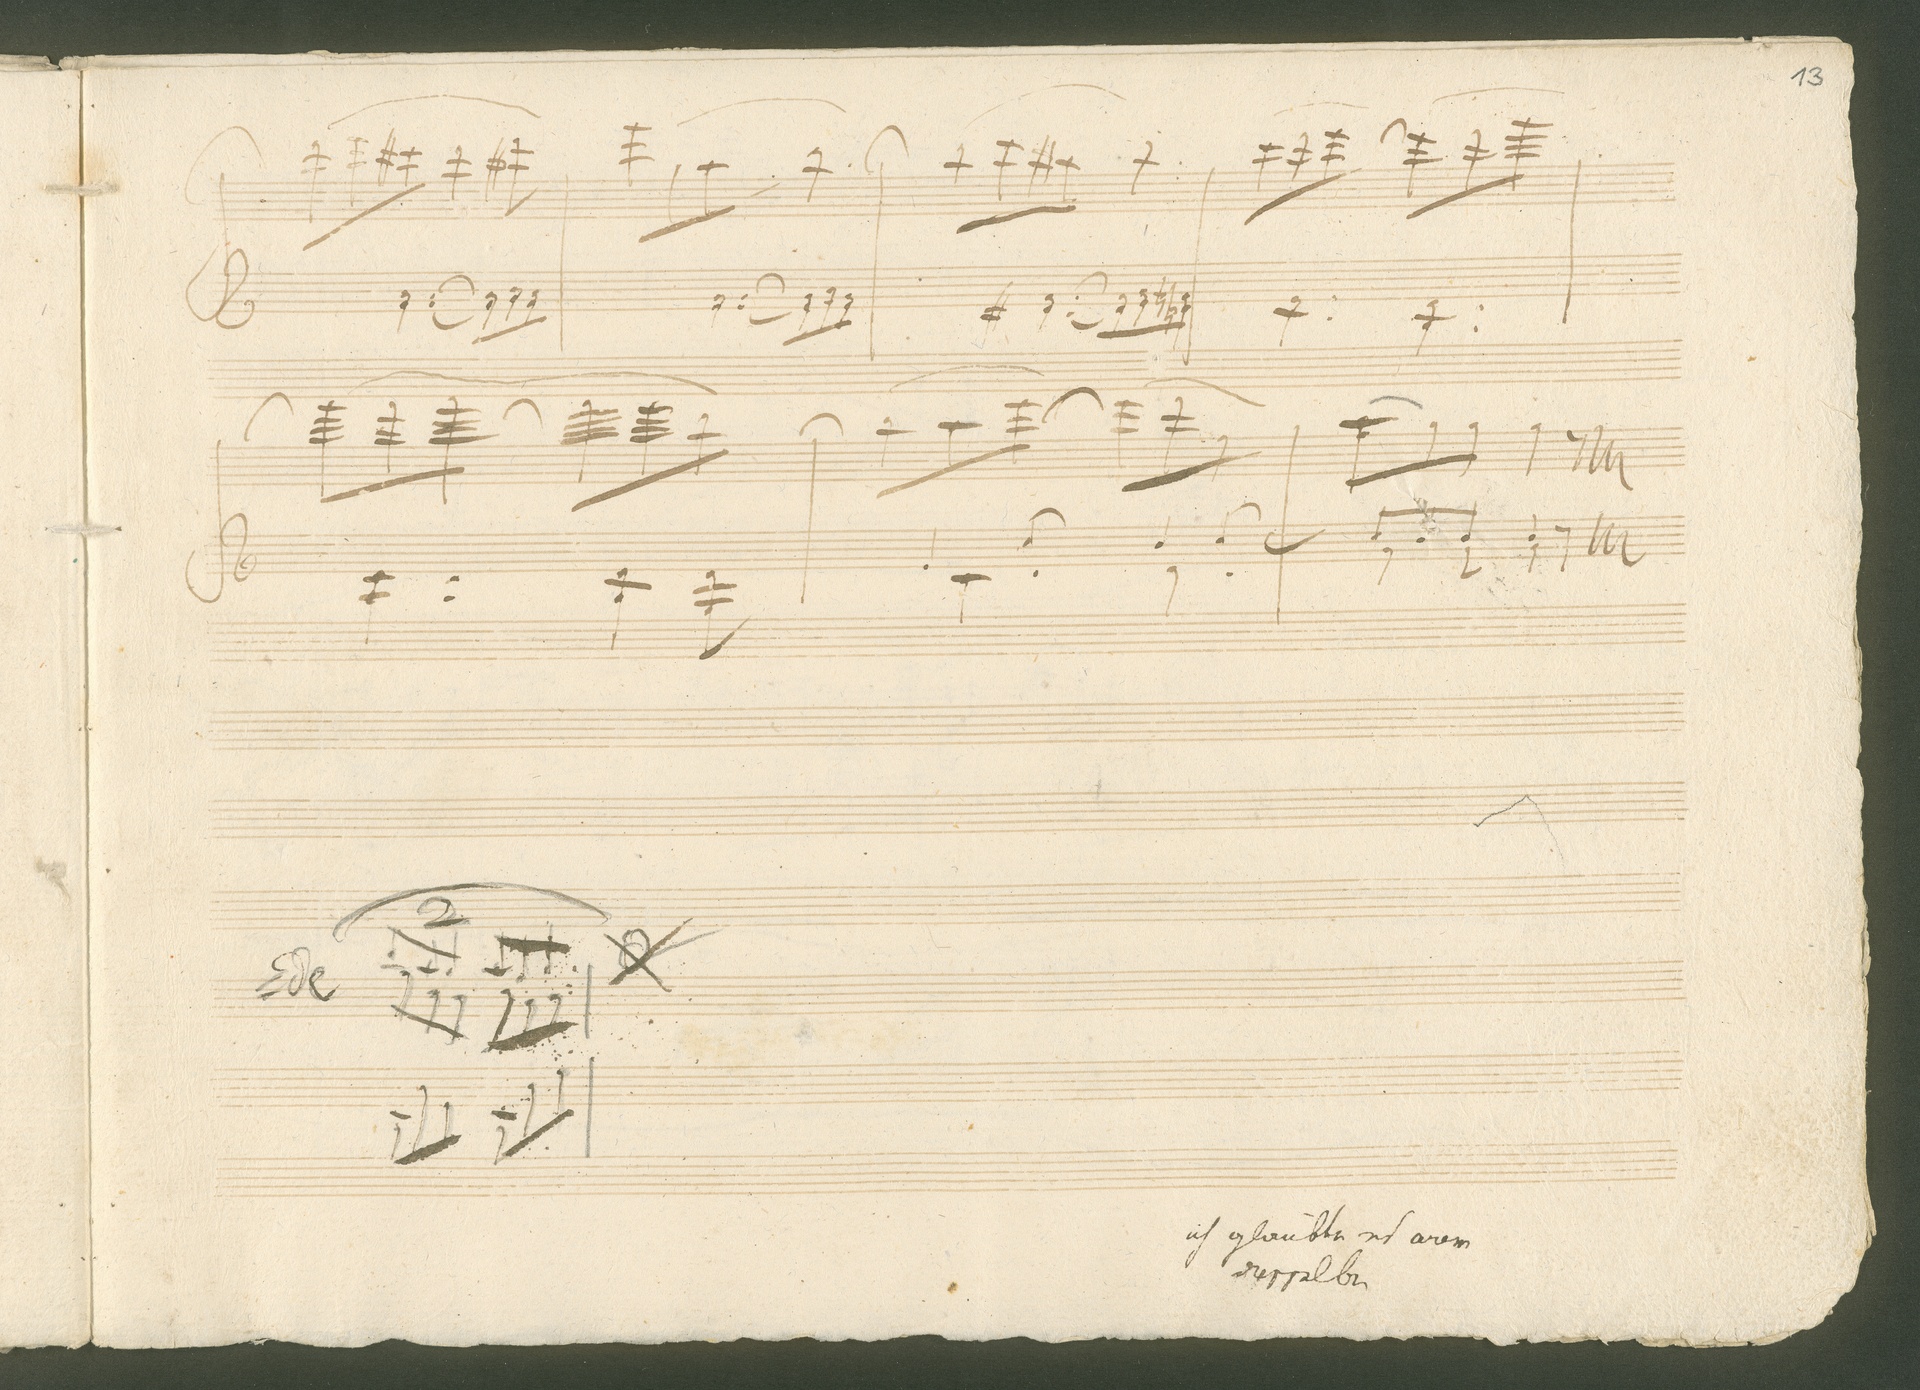 13
2
=de
ich glaubte es waren
dieselben